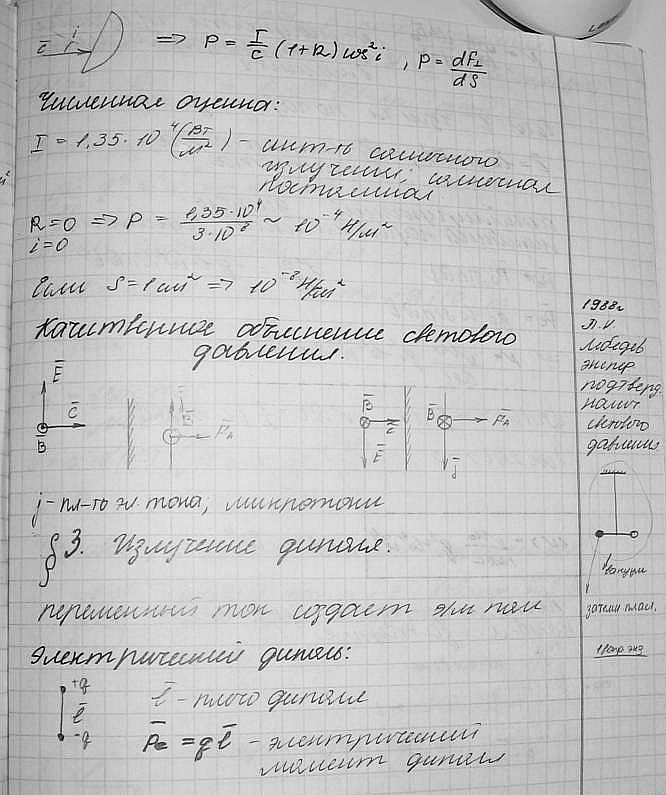 c̄ i ⇒ P = I/c (1+R) cos²i , P = dF⊥/dS
Численная оценка:
I = 1,35·10⁴ (Вт/м²) – инт-ть солнечного
излучения, солнечная
постоянная
R=0 ⇒ P = 1,35·10⁴/3·10⁸ ~ 10⁻⁴ Н/м²
i=0
Если S=1 см² ⇒ 10⁻⁸ Н/см²
Качественное объяснение светового
давления.
Ē
c̄
B̄
B̄ F̄A
B̄ c̄ Ē
B̄ F̄A j̄
j – пл-ть эл. тока; микротоки
§ 3. Излучение диполя.
переменный ток создает э/м поля
Электрический диполь:
+q
l̄ l̄ – плечо диполя
-q
P̄e = q l̄ – электрический
момент диполя
1988г
П.Н.
Лебедев
экспер
подтверд.
налич
светового
давления
вакуум
1 вопр экз